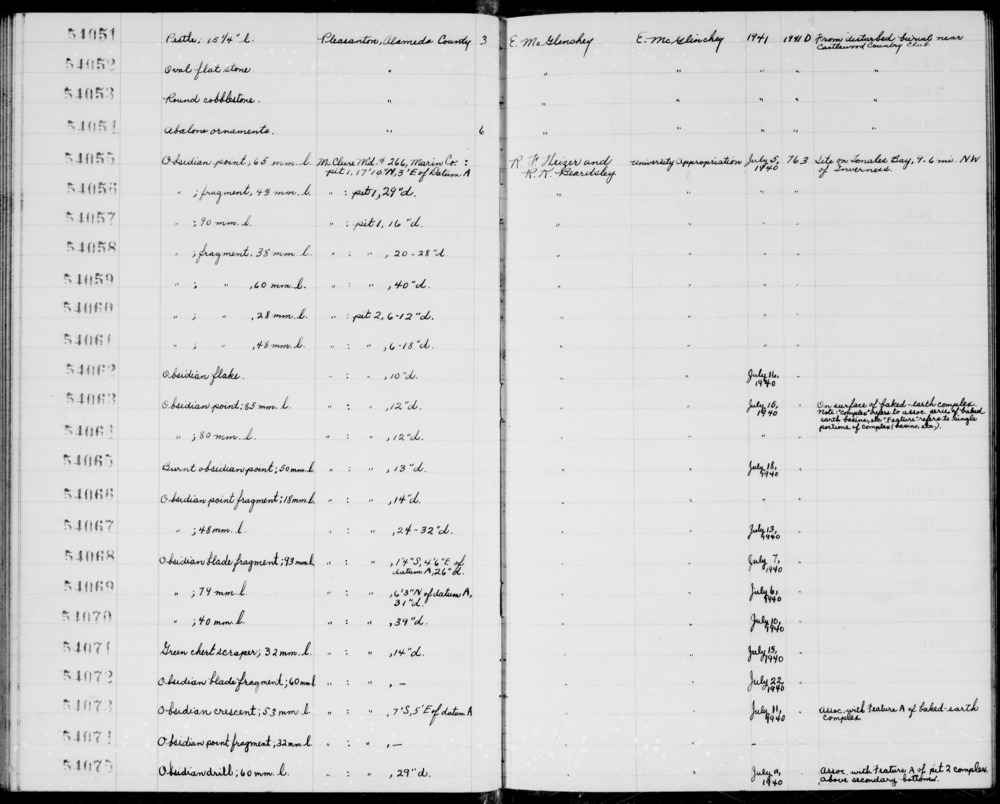 54051 Pestle; 15 1/4" l. Pleasanton, Alameda County 3 E. McGlinchey E. McGlinchey 1941 1941 D From disturbed burial near
Castlewood Country Club
54052 Oval flat stone. " " " " " "
54053 Round cobblestone. " " " " " "
54054 Abalone ornaments. " 6 " " " " "
54055 Obsidian point; 65 mm. l. McClure Md. # 266, Marin Co. : R. F. Heizer and University Appropriation July 5, 763 Site on Tomales Bay, 9.6 mi. NW
pit 1, 17'10"N, 3'E of Datum A R. K. Beardsley 1940 of Inverness.
54056 " ; fragment, 43 mm. l. " : pit 1, 29"d. " " " "
54057 " ; 90 mm. l. " : pit 1, 16"d. " " " "
54058 " ; fragment, 38 mm. l. " : " , 20-28"d. " " " "
54059 " ; " , 60 mm. l. " : " , 40"d. " " " "
54060 " ; " , 28 mm. l. " : pit 2, 6-12"d. " " " "
54061 " ; " , 48 mm. l. " : " , 6-18"d. " " " "
54062 Obsidian flake. " : " , 10"d. " " July 16, "
1940
54063 Obsidian point; 85 mm. l. " : " , 12"d. " " July 15, " On surface of baked-earth complex.
1940 Note: "Complex" refers to assoc. series of baked
earth basins, etc. "Feature" refers to single
portions of complex (basins, etc.).
54064 " ; 80 mm. l. " : " , 12"d. " " " "
54065 Burnt obsidian point; 50 mm. l. " : " , 13"d. " " July 18, "
1940
54066 Obsidian point fragment; 18 mm. l. " : " , 14"d. " " " "
54067 " ; 48 mm. l. " : " , 24-32"d. " " July 13, "
1940
54068 Obsidian blade fragment; 93 mm. l. " : " , 1'4"S, 4'6"E of " " July 7, "
datum A, 26"d. 1940
54069 " ; 79 mm. l. " : " , 6'3"N of datum A, " " July 6, "
31"d. 1940
54070 " ; 40 mm. l. " : " , 39"d. " " July 10, "
1940
54071 Green chert scraper; 32 mm. l. " : " , 14"d. " " July 15, "
1940
54072 Obsidian blade fragment; 60 mm. l. " : " , — " " July 22, "
1940
54073 Obsidian crescent; 53 mm. l. " : " , 7'S, 5'E of datum A " " July 11, " Assoc. with Feature A of baked-earth
1940 complex
54074 Obsidian point fragment; 32 mm. l. " : " , — " " - "
54075 Obsidian drill; 60 mm. l. " : " , 29"d. " " July 11, " Assoc. with Feature A of pit 2 complex
1940 above secondary bottom.